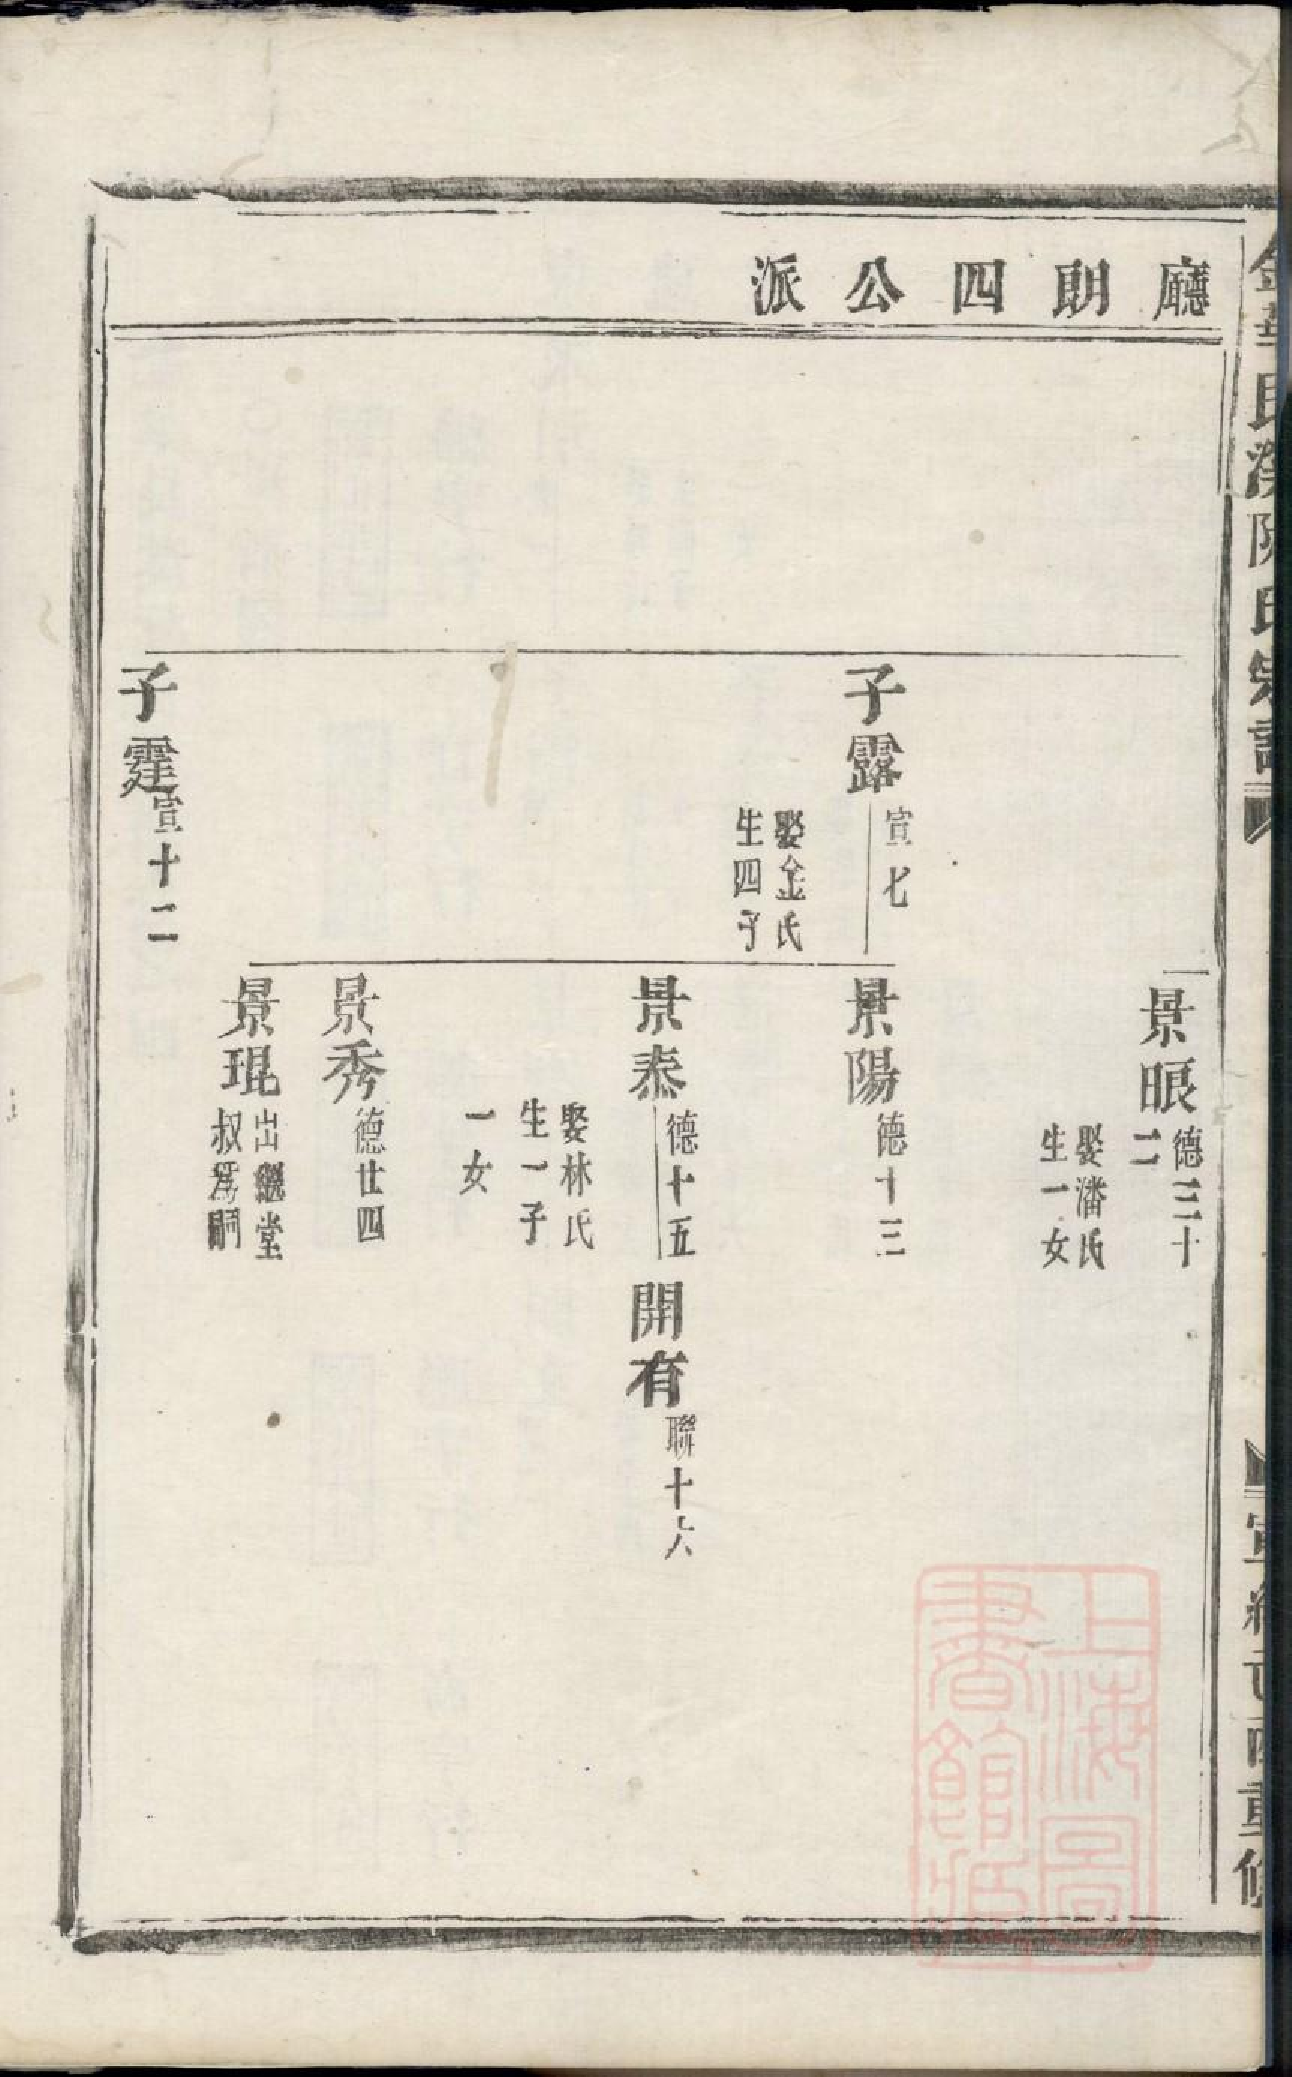 廳朗四公派
景眼
德三十
二
娶潘氏
生一女
子露
宣七
娶金氏
生四子
景陽
德十三
景泰
德十五
娶林氏
生一子
一女
開有
聯十六
景秀
德廿四
景琨
出繼堂
叔爲嗣
子霆
宣十二
上海圖
書館藏